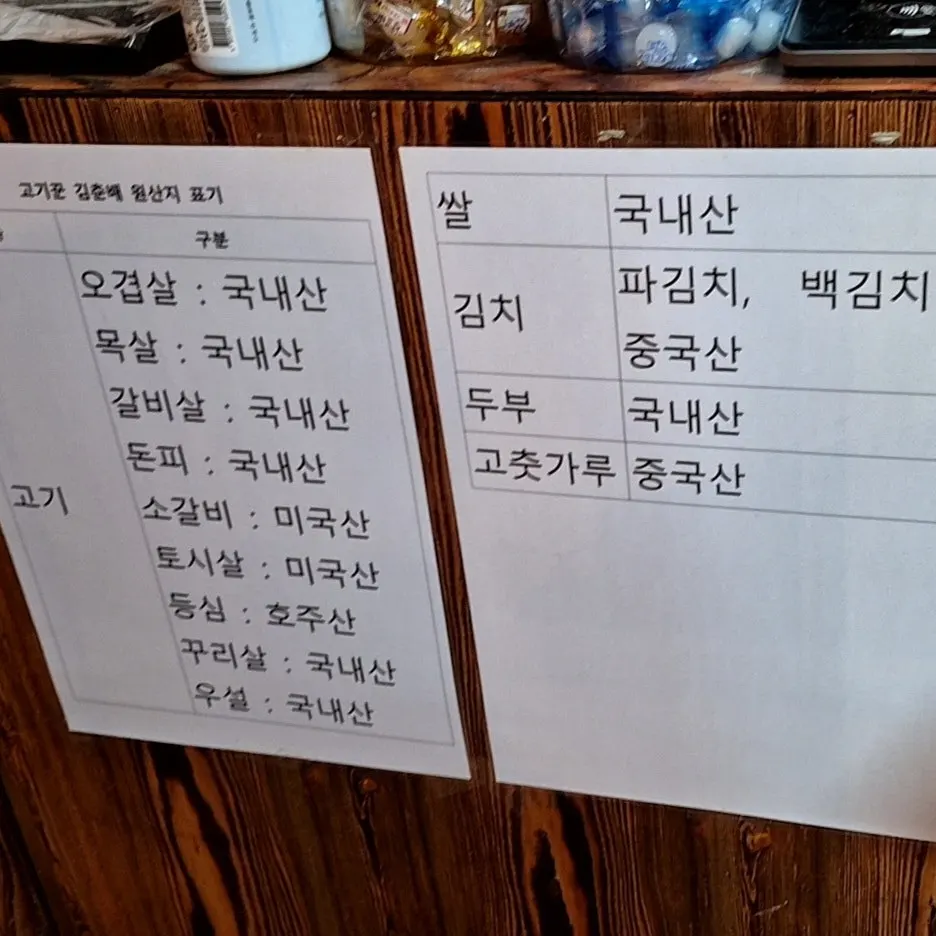 고기꾼 김춘배 원산지 표기
구분
고기
오겹살 : 국내산
목살 : 국내산
갈비살 : 국내산
돈피 : 국내산
소갈비 : 미국산
토시살 : 미국산
등심 : 호주산
꾸리살 : 국내산
우설 : 국내산
쌀 국내산
김치 파김치, 백김치
중국산
두부 국내산
고춧가루 중국산